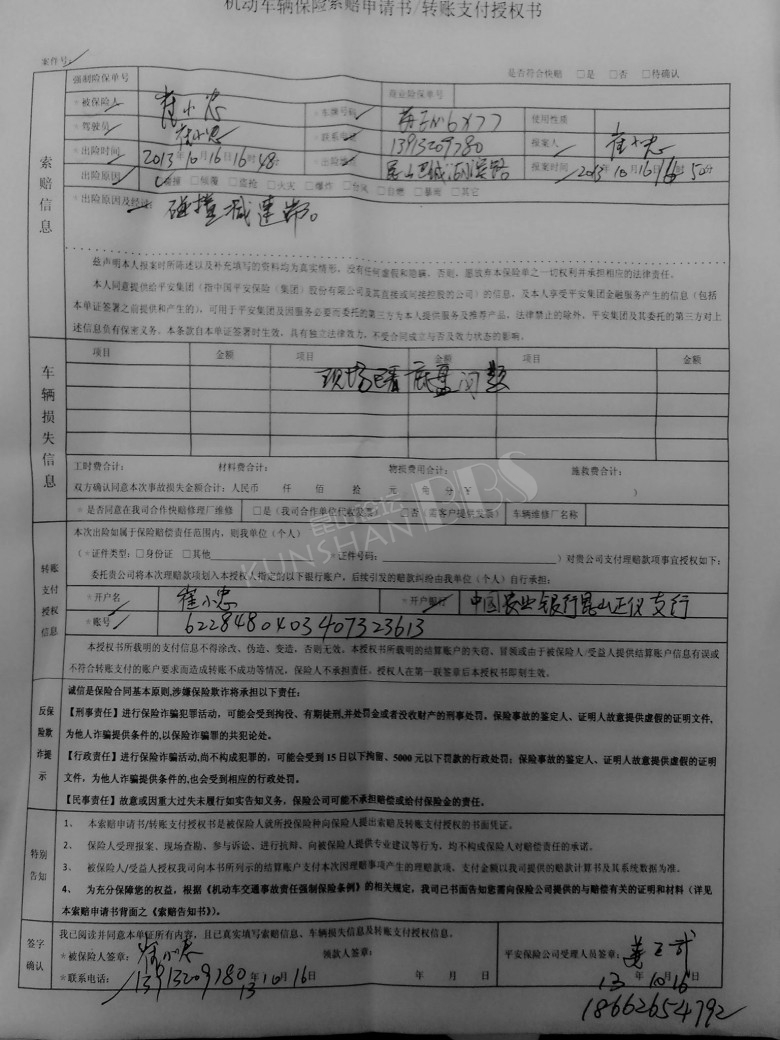 机动车辆保险索赔申请书/转账支付授权书
案件号: 是否符合快赔 □是 □否 □待确认
强制险保单号 商业险保单号
*被保险人 崔小忠 *车牌号码 使用性质
*驾驶员 崔小忠 *联系电话 13913209780 报案人 崔小忠
*出险时间 2013年10月16日16时48分 *出险地点 报案时间 2013年10月16日16时50分
出险原因 碰撞 □倾覆 □盗抢 □火灾 □爆炸 □台风 □自燃 □暴雨 □其它
*出险原因及经过: 碰撞减速带。
索赔信息
兹声明本人报案时所陈述以及补充填写的资料均为真实情形,没有任何虚假和隐瞒。否则,愿放弃本保险单之一切权利并承担相应的法律责任。
本人同意提供给平安集团(指中国平安保险(集团)股份有限公司及其直接或间接控股的公司)的信息,及本人享受平安集团金融服务产生的信息(包括
本单证签署之前提供和产生的),可用于平安集团及因服务必要而委托的第三方为本人提供服务及推荐产品,法律禁止的除外。平安集团及其委托的第三方对上
述信息负有保密义务。本条款自本单证签署时生效,具有独立法律效力,不受合同成立与否及效力状态的影响。
车辆损失信息
项目 金额 项目 金额 项目 金额
现场查看底盘
工时费合计: 材料费合计: 物损费用合计: 施救费合计:
双方确认同意本次事故损失金额合计:人民币 仟 佰 拾 元 角 分(¥ )
*是否同意在我司合作快赔修理厂维修 □是(我司合作单位代收发票) □否(需客户提供发票) 车辆维修厂名称
转账支付授权信息
本次出险如属于保险赔偿责任范围内,则我单位(个人)
(*证件类型:□身份证 □其他 *证件号码: )对贵公司支付理赔款项事宜授权如下:
委托贵公司将本次理赔款项划入本授权人指定的以下银行账户。后续引发的赔款纠纷由我单位(个人)自行承担:
*开户名 崔小忠 *开户银行 中国农业银行昆山正仪支行
*账号 6228480403407323613
本授权书所载明的支付信息不得涂改、伪造、变造,否则无效。本授权书所载明的结算账户的失窃、冒领或由于被保险人/受益人提供结算账户信息有误或
不符合转账支付的账户要求而造成转账不成功等情况,保险人不承担责任。授权人在第一联签章后本授权书即刻生效。
反保险欺诈提示
诚信是保险合同基本原则,涉嫌保险欺诈将承担以下责任:
【刑事责任】进行保险诈骗犯罪活动,可能会受到拘役、有期徒刑,并处罚金或者没收财产的刑事处罚。保险事故的鉴定人、证明人故意提供虚假的证明文件,
为他人诈骗提供条件的,以保险诈骗罪的共犯论处。
【行政责任】进行保险诈骗活动,尚不构成犯罪的,可能会受到15日以下拘留、5000元以下罚款的行政处罚;保险事故的鉴定人、证明人故意提供虚假的证明
文件,为他人诈骗提供条件的,也会受到相应的行政处罚。
【民事责任】故意或因重大过失未履行如实告知义务,保险公司可能不承担赔偿或给付保险金的责任。
特别告知
1、 本索赔申请书/转账支付授权书是被保险人就所投保险种向保险人提出索赔及转账支付授权的书面凭证。
2、 保险人受理报案、现场查勘、参与诉讼、进行抗辩、向被保险人提供专业建议等行为,均不构成保险人对赔偿责任的承诺。
3、 被保险人/受益人授权我司向本书所列示的结算账户支付本次因理赔事项产生的理赔款项。支付金额以我司提供的赔款计算书及其系统数据为准。
4、 为充分保障您的权益,根据《机动车交通事故责任强制保险条例》的相关规定,我司已书面告知您需向保险公司提供的与赔偿有关的证明和材料(详见
本索赔申请书背面之《索赔告知书》)。
签字确认
我已阅读并同意本单证所有内容,且已真实填写索赔信息、车辆损失信息及转账支付授权信息。
*被保险人签章: 崔小忠 领款人签章: 平安保险公司受理人员签章:
*联系电话: 13913209780 13年10月16日 年 月 日 13年10月16日
18662654792
昆山论坛
KUNSHAN BBS